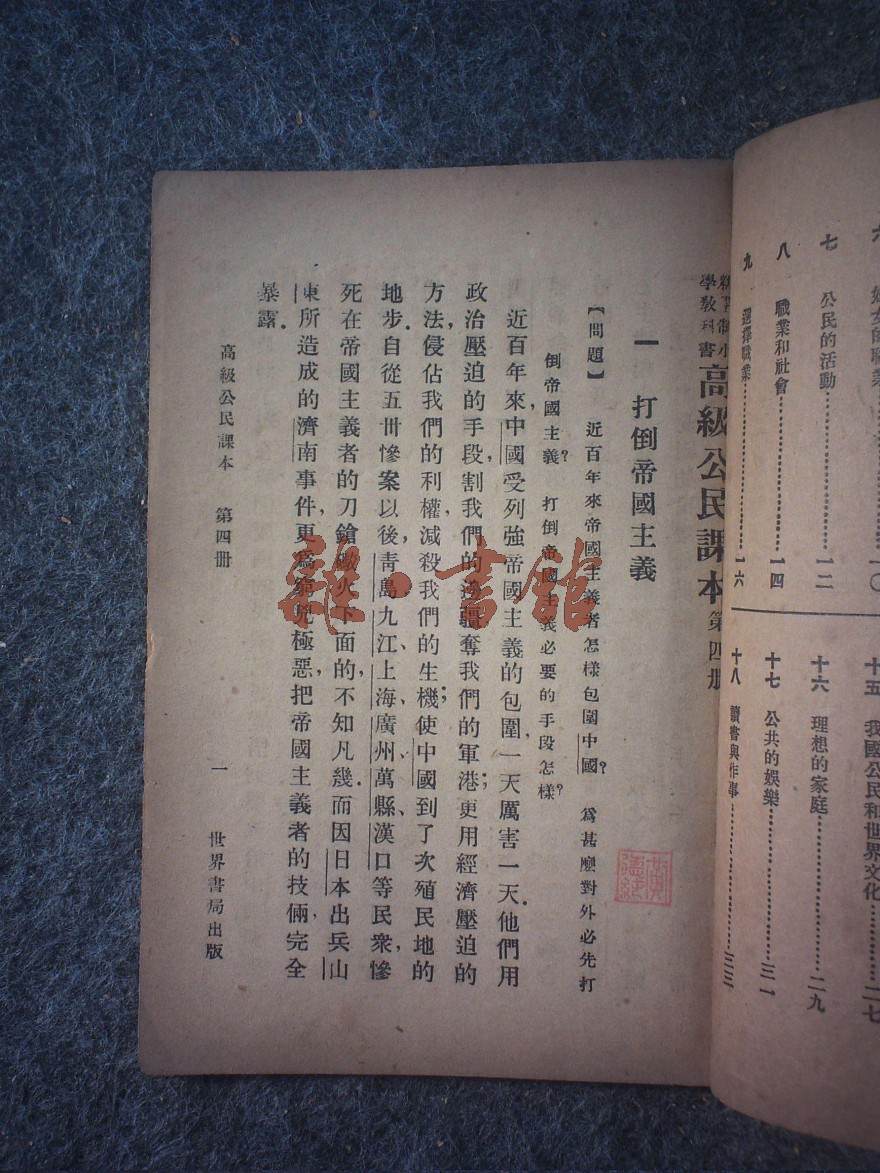 七 公民的活動……一二
八 職業和社會……一四
九 選擇職業……一六
十五 我國公民和世界文化……二七
十六 理想的家庭……二九
十七 公共的娛樂……三一
十八 讀書與作事……三三
新學制小
學教科書
高級公民課本 第四册
一 打倒帝國主義
【問題】 近百年來帝國主義者怎樣包圍中國? 爲甚麼對外必先打
倒帝國主義? 打倒帝國主義必要的手段怎樣?
近百年來,中國受列強帝國主義的包圍,一天厲害一天.他們用
政治壓迫的手段,割我們的邊疆,奪我們的軍港;更用經濟壓迫的
方法,侵佔我們的利權,減殺我們的生機;使中國到了次殖民地的
地步.自從五卅慘案以後,青島、九江、上海、廣州、萬縣、漢口等民衆,慘
死在帝國主義者的刀鎗礮火下面的,不知凡幾.而因日本出兵山
東所造成的濟南事件,更爲窮兇極惡,把帝國主義者的技倆,完全
暴露.
高級公民課本 第四册 一 世界書局出版
雜·書館